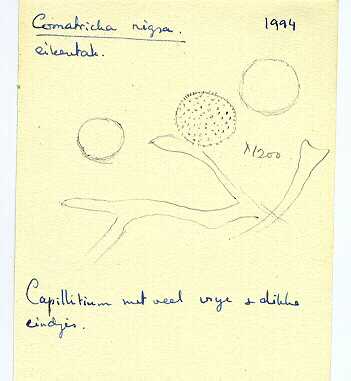 Comatricha nigra. 1994
eikentak.
x1200
Capillitium met veel vrije & dikke
eindjes.